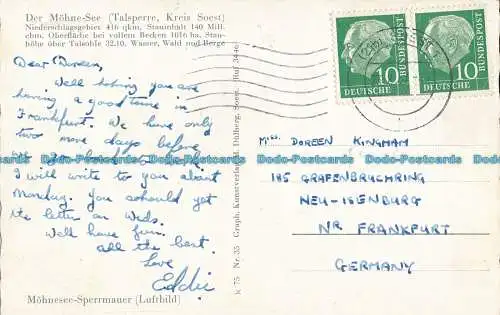 Der Möhne-See (Talsperre, Kreis Soest)
Niederschlagsgebiet 416 qkm, Stauinhalt 140 Mill.
cbm, Oberfläche bei vollem Becken 1016 ha, Stau-
höhe über Talsohle 32.10. Wasser, Wald und Berge
Dear Doreen,
Well hoping you are
having a good time in
Frankfurt. We have only
two more days before
we go
I will write to you about
Monday. You ashould get
the letter on Weds.
Well have fun.
all the best.
Love
Eddie
Möhnesee-Sperrmauer (Luftbild)
k 75 Nr. 35 Graph. Kunstverlag Dülberg, Soest, Ruf 3446
10 DEUTSCHE BUNDESPOST
10 DEUTSCHE BUNDESPOST
Miss. DOREEN KINGHAM
Dodo-Postcards Dodo-Postcards Dodo-Postcards Dodo-Postcards Dodo-Postcards
185 GRAFENBRUCHRING
NEU-ISENBURG
NR FRANKFURT
GERMANY